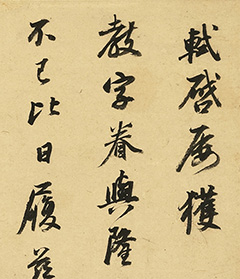 軾啓屢獲
教字眷與隆
不已比日履茲